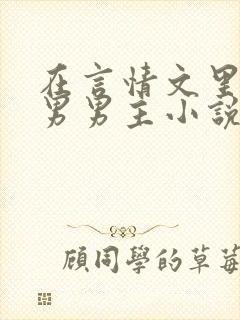 在言情文里
男男主小説
顧同學的草莓